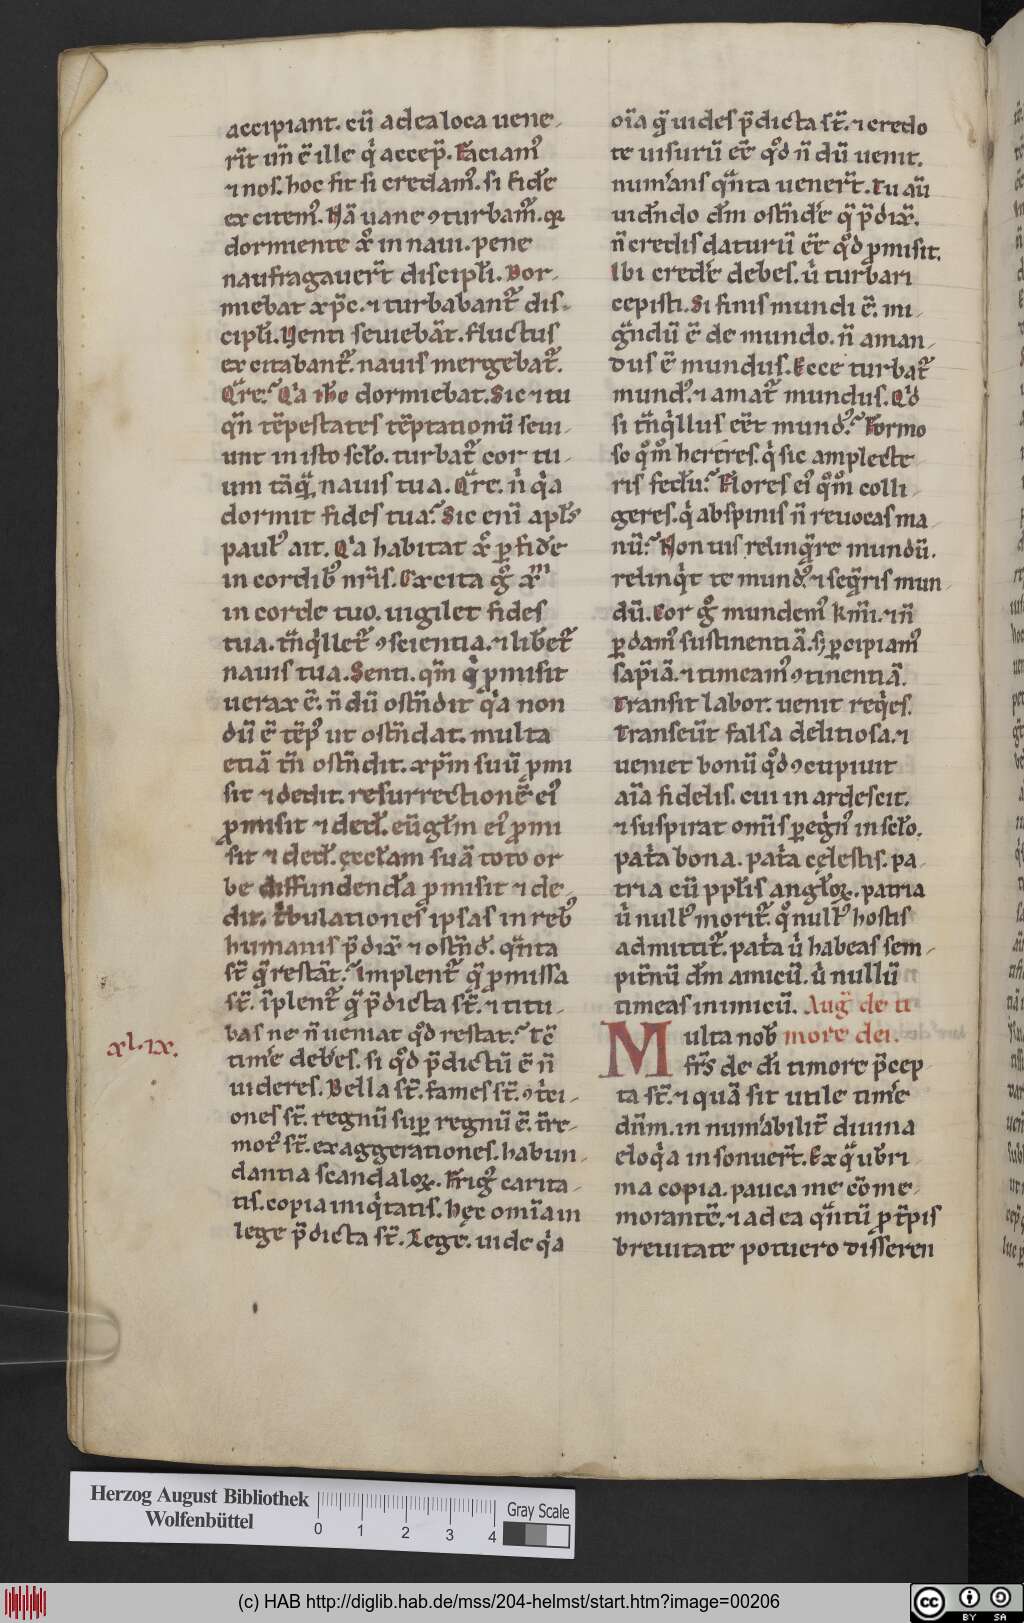 accipiant. cū ad ea loca uene-
rīt un̄ ē ille q̇ accep̄. Faciam᷒
⁊ nos. hoc fit si credam᷒. si fidē
excitem᷒. Nā uane ꝯturbam̄. q̄
dormiente xp̄o in naui. pene
naufragauer̄t discipłi. Dor-
miebat xp̄c. ⁊ turbabant᷒ dis-
cipłi. Uenti seuiebāt. fluctus
excitabant᷒. nauis mergebat᷒.
Q̄re? Q̇a ihc dormiebat. Sic ⁊ tu
qn̄ tēpestates tēptationū seui-
unt in isto scło. turbat᷒ cor tu-
um tāq̄ nauis tua. Q̄re. n̄ q̇a
dormit fides tua? Sic eni apłs
pauł᷒ ait. Q̇a habitat xp̄c ꝑ fidē
in cordib᷒ nr̄is. Excita g̊ xp̄m
in corde tuo. uigilet fides
tua. tn̄q̇llet᷒ ꝯscientia. ⁊ libet᷒
nauis tua. Senti. qm̄ q̇ ꝓmisit
uerax ē. n̄ dū ostn̄dit q̇a non
dū ē tēp᷒ ut ostn̄dat. multa
etiā tn̄ ostn̄dit. xp̄m suū ꝓmi
sit ⁊ dedit. resurrectionē ei᷒
ꝓmisit ⁊ ded̄. eūgłm ei᷒ ꝓmi
sit ⁊ ded̄. ęccłam suā toto or
be diffundendā ꝓmisit ⁊ de-
dit. tb̄ulationes ipsas in reb᷒
humanis p̄dix̄ ⁊ ostn̄d. qn̄ta
st̄ q̄ restāt? Implent᷒ q̄ ꝓmissa
st̄. īplent᷒ q̄ p̄dicta st̄. ⁊ titu-
bas ne n̄ ueniat qd̊ restat? Tc̄
timē debes. si qd̊ p̄dictū ē n̄
uideres. Bella st̄. fames st̄. ꝯt̄ci-
ones st̄. regnū suꝑ regnū ē. t̄re-
mot᷒ st̄. exaggerationes. habun-
dantia scandaloꝝ. Frig᷒ carita-
tis. copia iniq̇tatis. hęc omīa in
lege p̄dicta st̄. Lege. uide q̇a
oīa q̄ uides p̄dicta st̄. ⁊ credo
te uisurū eē qd̊ n̄ dū uenit.
num̄ans qn̄ta uener̄t. Tu aū
uidn̄do dm̄ ostn̄dē q̄ p̄dix̄.
n̄ credis daturū eē qd̊ ꝓmisit.
Ibi credē debes. u̇ turbari
cepisti. Si finis mundi ē. mi-
gn̄dū ē de mundo. n̄ aman-
dus ē mundus. Ecce turbat᷒
mund᷒. ⁊ amat᷒ mundus. Q̇d
si tn̄q̇llus eēt mund᷒? Formo
so qm̊ hereres. q̇ sic amplecte
ris fedū? Flores ei᷒ qm̊ colli-
geres. q̇ ab spinis n̄ reuocas ma-
nū? Non uis relinq̄re mundū.
relinq̇t te mund᷒. ⁊ seq̄ris mun
dū. Cor g̊ mundem᷒ km̄i. ⁊ n̄
ꝑdam᷒ sustinentiā. s; ꝑcipiam᷒
sap̄iā. ⁊ timeam᷒ ꝯtinentiā.
Transit labor. uenit req̇es.
Transeūt falsa delitiosa. ⁊
ueniet bonū qd̊ ꝯcupiuit
aīa fidelis. cui inardescit.
⁊ suspirat omīs ꝑegn̄᷒ in scło.
pat̄a bona. pat̄a cęlestis. pa-
tria cū ppłis angłoꝝ. patria
u̇ null᷒ morit᷒. q̊ null᷒ hostis
admittit᷒. pat̄a u̇ habeas sem-
pit̄nū dm̄ amicū. u̇ nullū
timeas inimicū. Aug de ti
Multa nob̄ more dei.
xl. ix.
fr̄s de dī timore p̄cep
ta st̄. ⁊ quā sit utile timē
dn̄m. in num̄abilit̄ diuina
eloq̇a insonuer̄t. Ex q̄ ub̄ri
ma copia. pauca me cōme-
morantē. ⁊ ad ea qn̄tū ꝓ t̄pis
breuitate potuero disseren
Herzog August Bibliothek
Wolfenbüttel
0 1 2 3 4
Gray Scale
(c) HAB http://diglib.hab.de/mss/204-helmst/start.htm?image=00206
cc BY SA